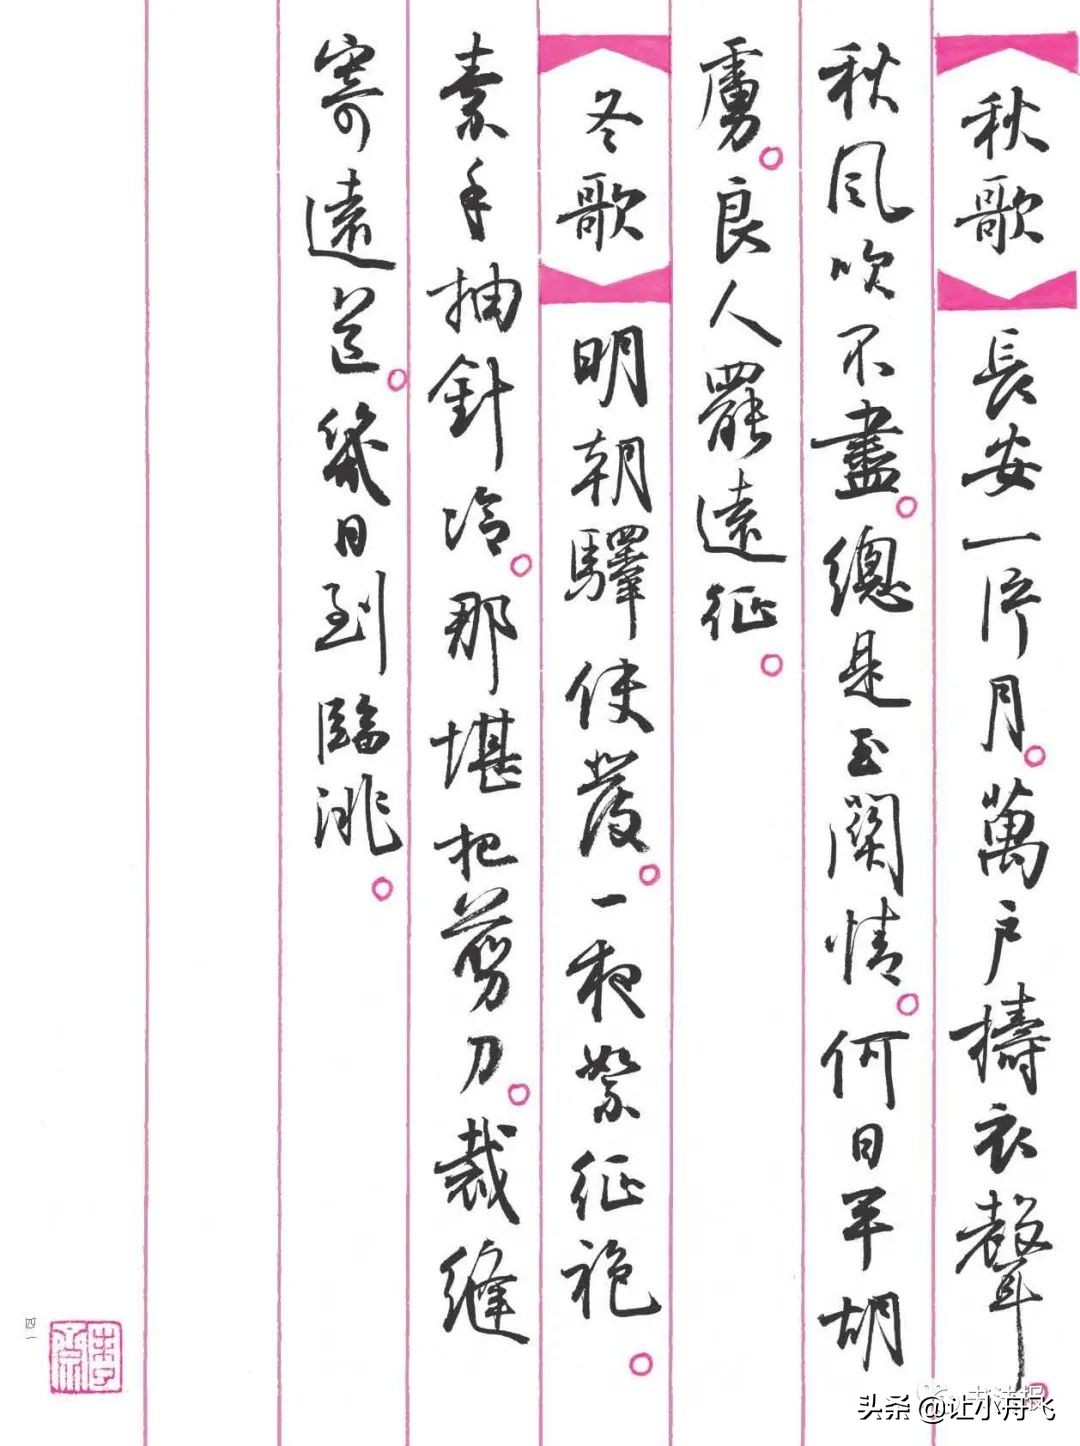 秋歌 長安一片月。萬戶擣衣聲。
秋風吹不盡。總是玉關情。何日平胡
虜。良人罷遠征。
冬歌 明朝驛使發。一夜絮征袍。
素手抽針冷。那堪把剪刀。裁縫
寄遠道。幾日到臨洮。
四一
头条 @让小舟飞